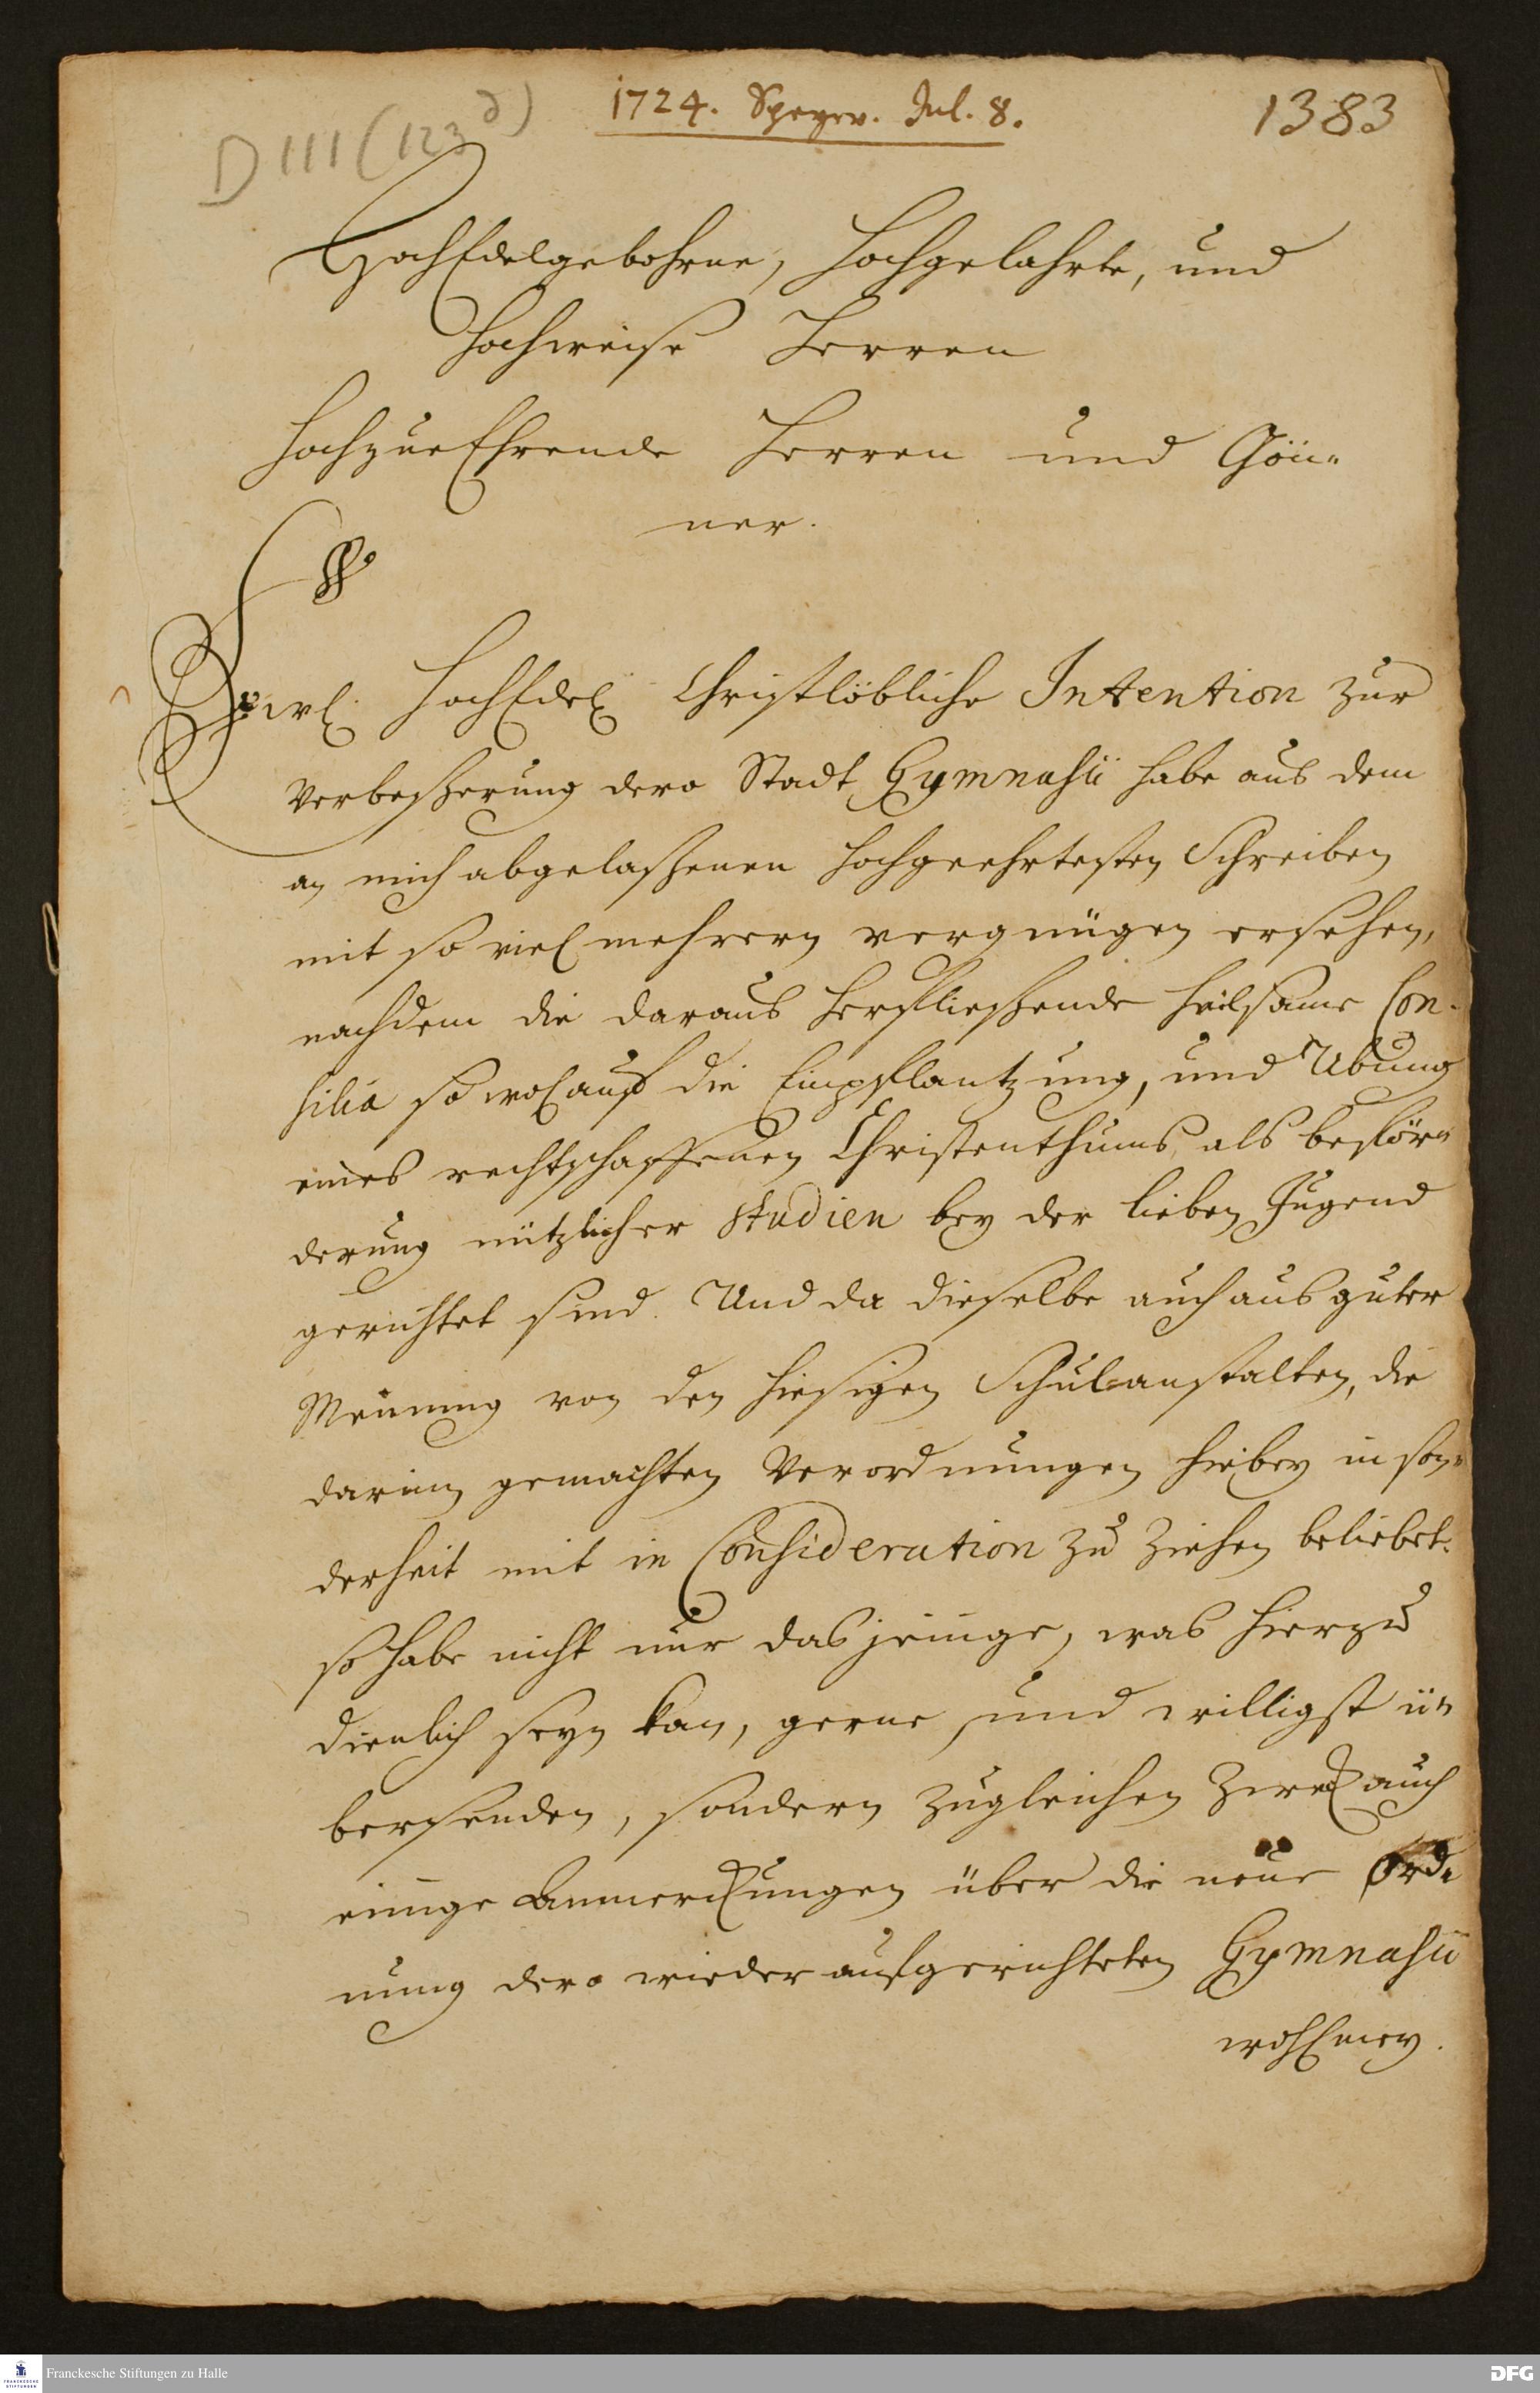 D 111 (123 d)
1724. Speyer. Jul. 8.
1383
HochEdelgebohrne, Hochgelahrte, und
Hochweise Herren
HochzuEhrende Herren und Gön-
ner.
HochEdel Christlöbliche Intention zur
Verbeßerung dero Stadt Gymnasii habe aus dem
an mich abgelaßenen hochgeehrtesten Schreiben
mit so viel mehrern vergnügen ersehen,
nachdem die daraus herfließende heilsame Con-
silia so wol auf die Einpflantzung, und Übung
eines rechtschaffenen Christenthums, als beför-
derung nützlicher Studien bey der lieben Jugend
gerichtet sind. Und da dieselbe auch aus guter
Meinung von den hiesigen Schulanstalten, die
darinn gemachten Verordnungen hiebey in son-
derheit mit in Consideration zu ziehen beliebet.
so habe nicht nur dasjenige, was hierzu
dienlich seyn kan, gerne und willigst ü-
bersenden, sondern zugleichen Zweck auch
einige Anmerckungen über die neue Ord-
nung dero wieder aufgerichteten Gymnasii
wohlmey.
Franckesche Stiftungen zu Halle
DFG